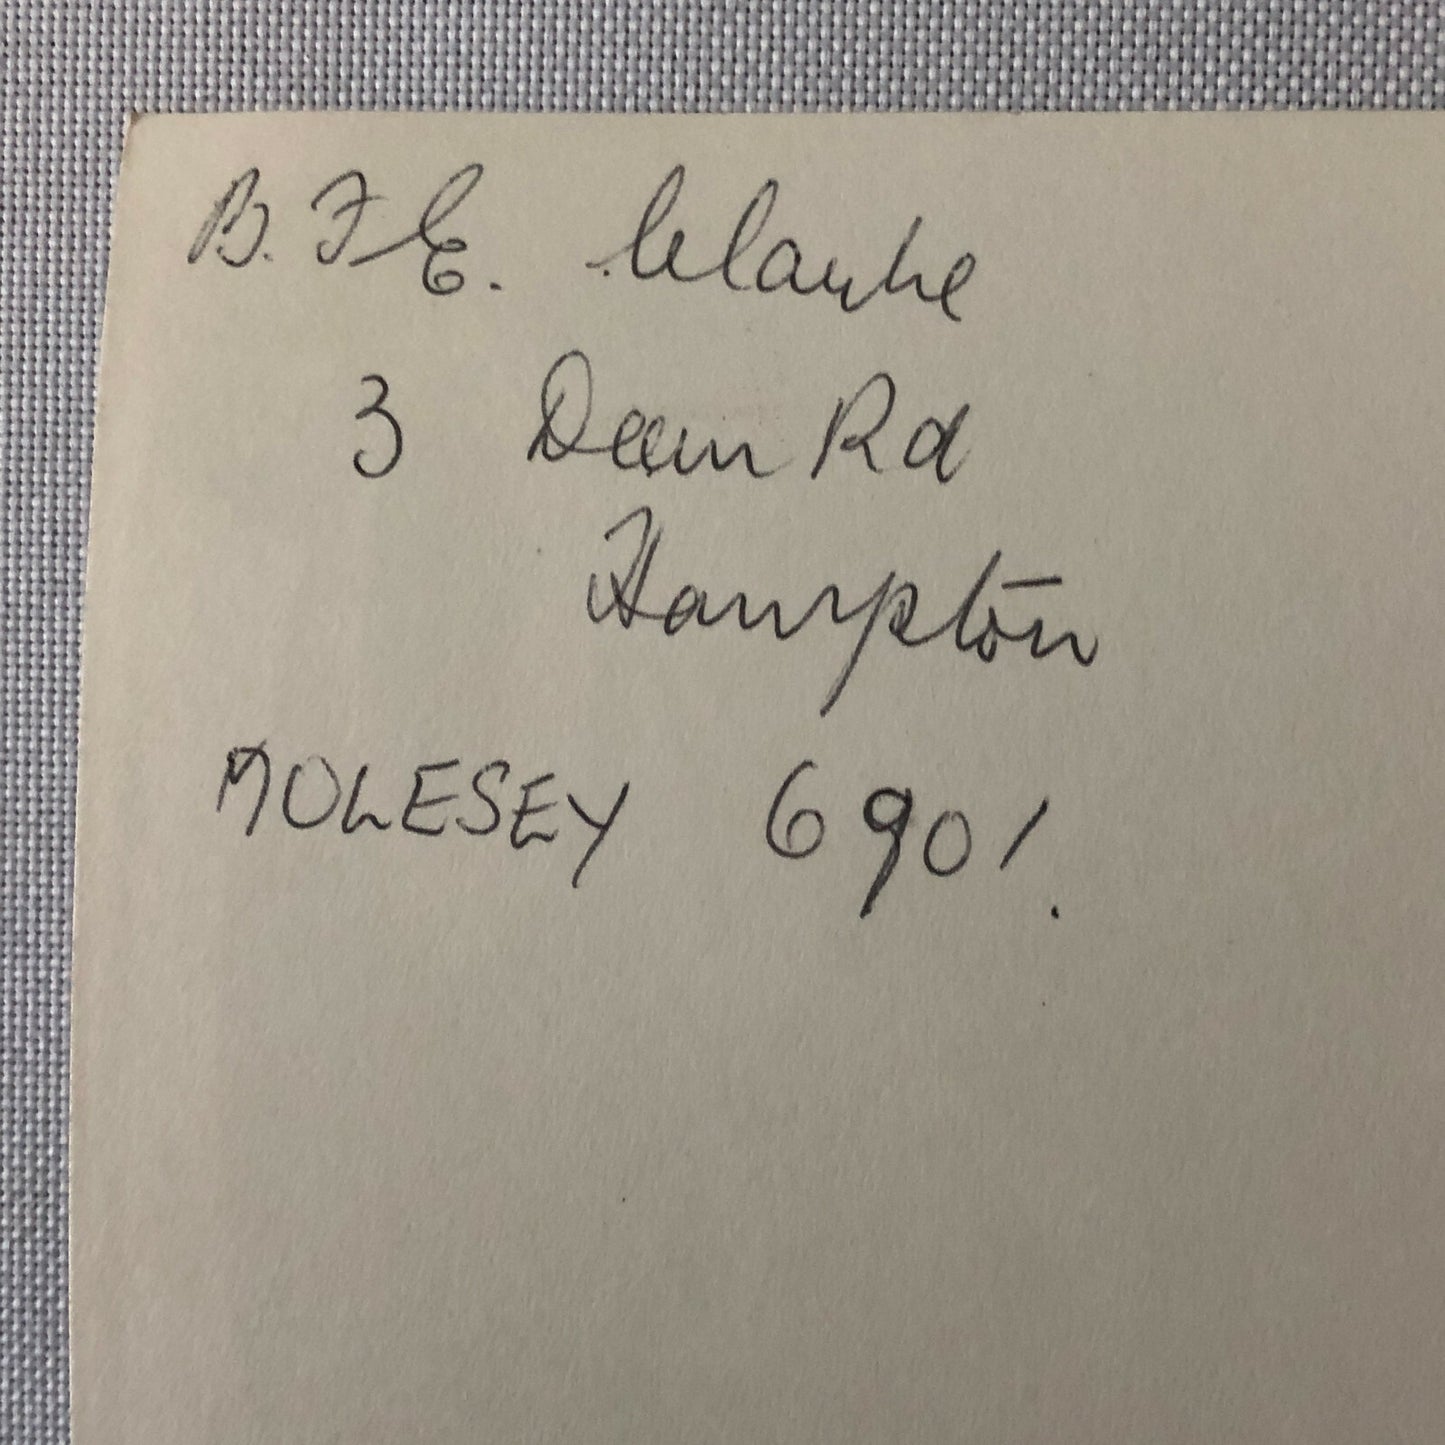 B. F E. Clarke
3 Dean Rd
Hampton
MOLESEY 6901.